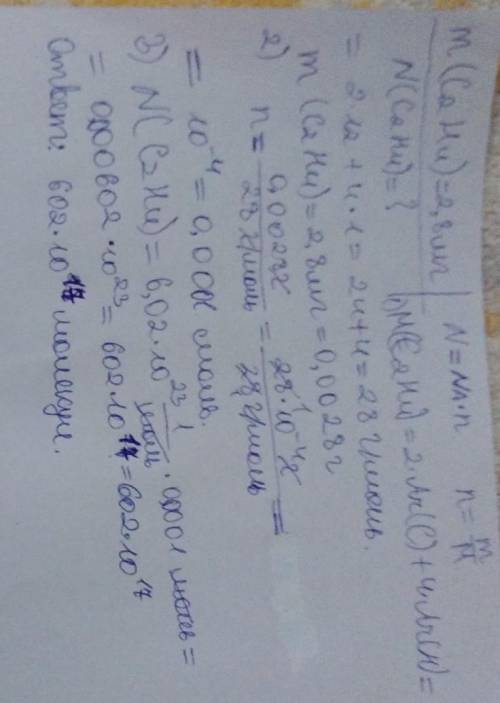 m(C2H4)=2,8мг | N=NA·n n=m/M
N(C2H4)=? | 1) M(C2H4)=2·Ar(C)+4·Ar(H)=
=2·12+4·1=24+4=28 г/моль.
m(C2H4)=2,8мг=0,0028г
2) n=0,0028г/28г/моль=28·10^-4г/28г/моль=
=10^-4=0,0001 моль.
3) N(C2H4)=6,02·10^23 1/моль·0,0001 моль=
=0,000602·10^23=602·10^17=602·10^17
Ответ: 602·10^17 молекул.